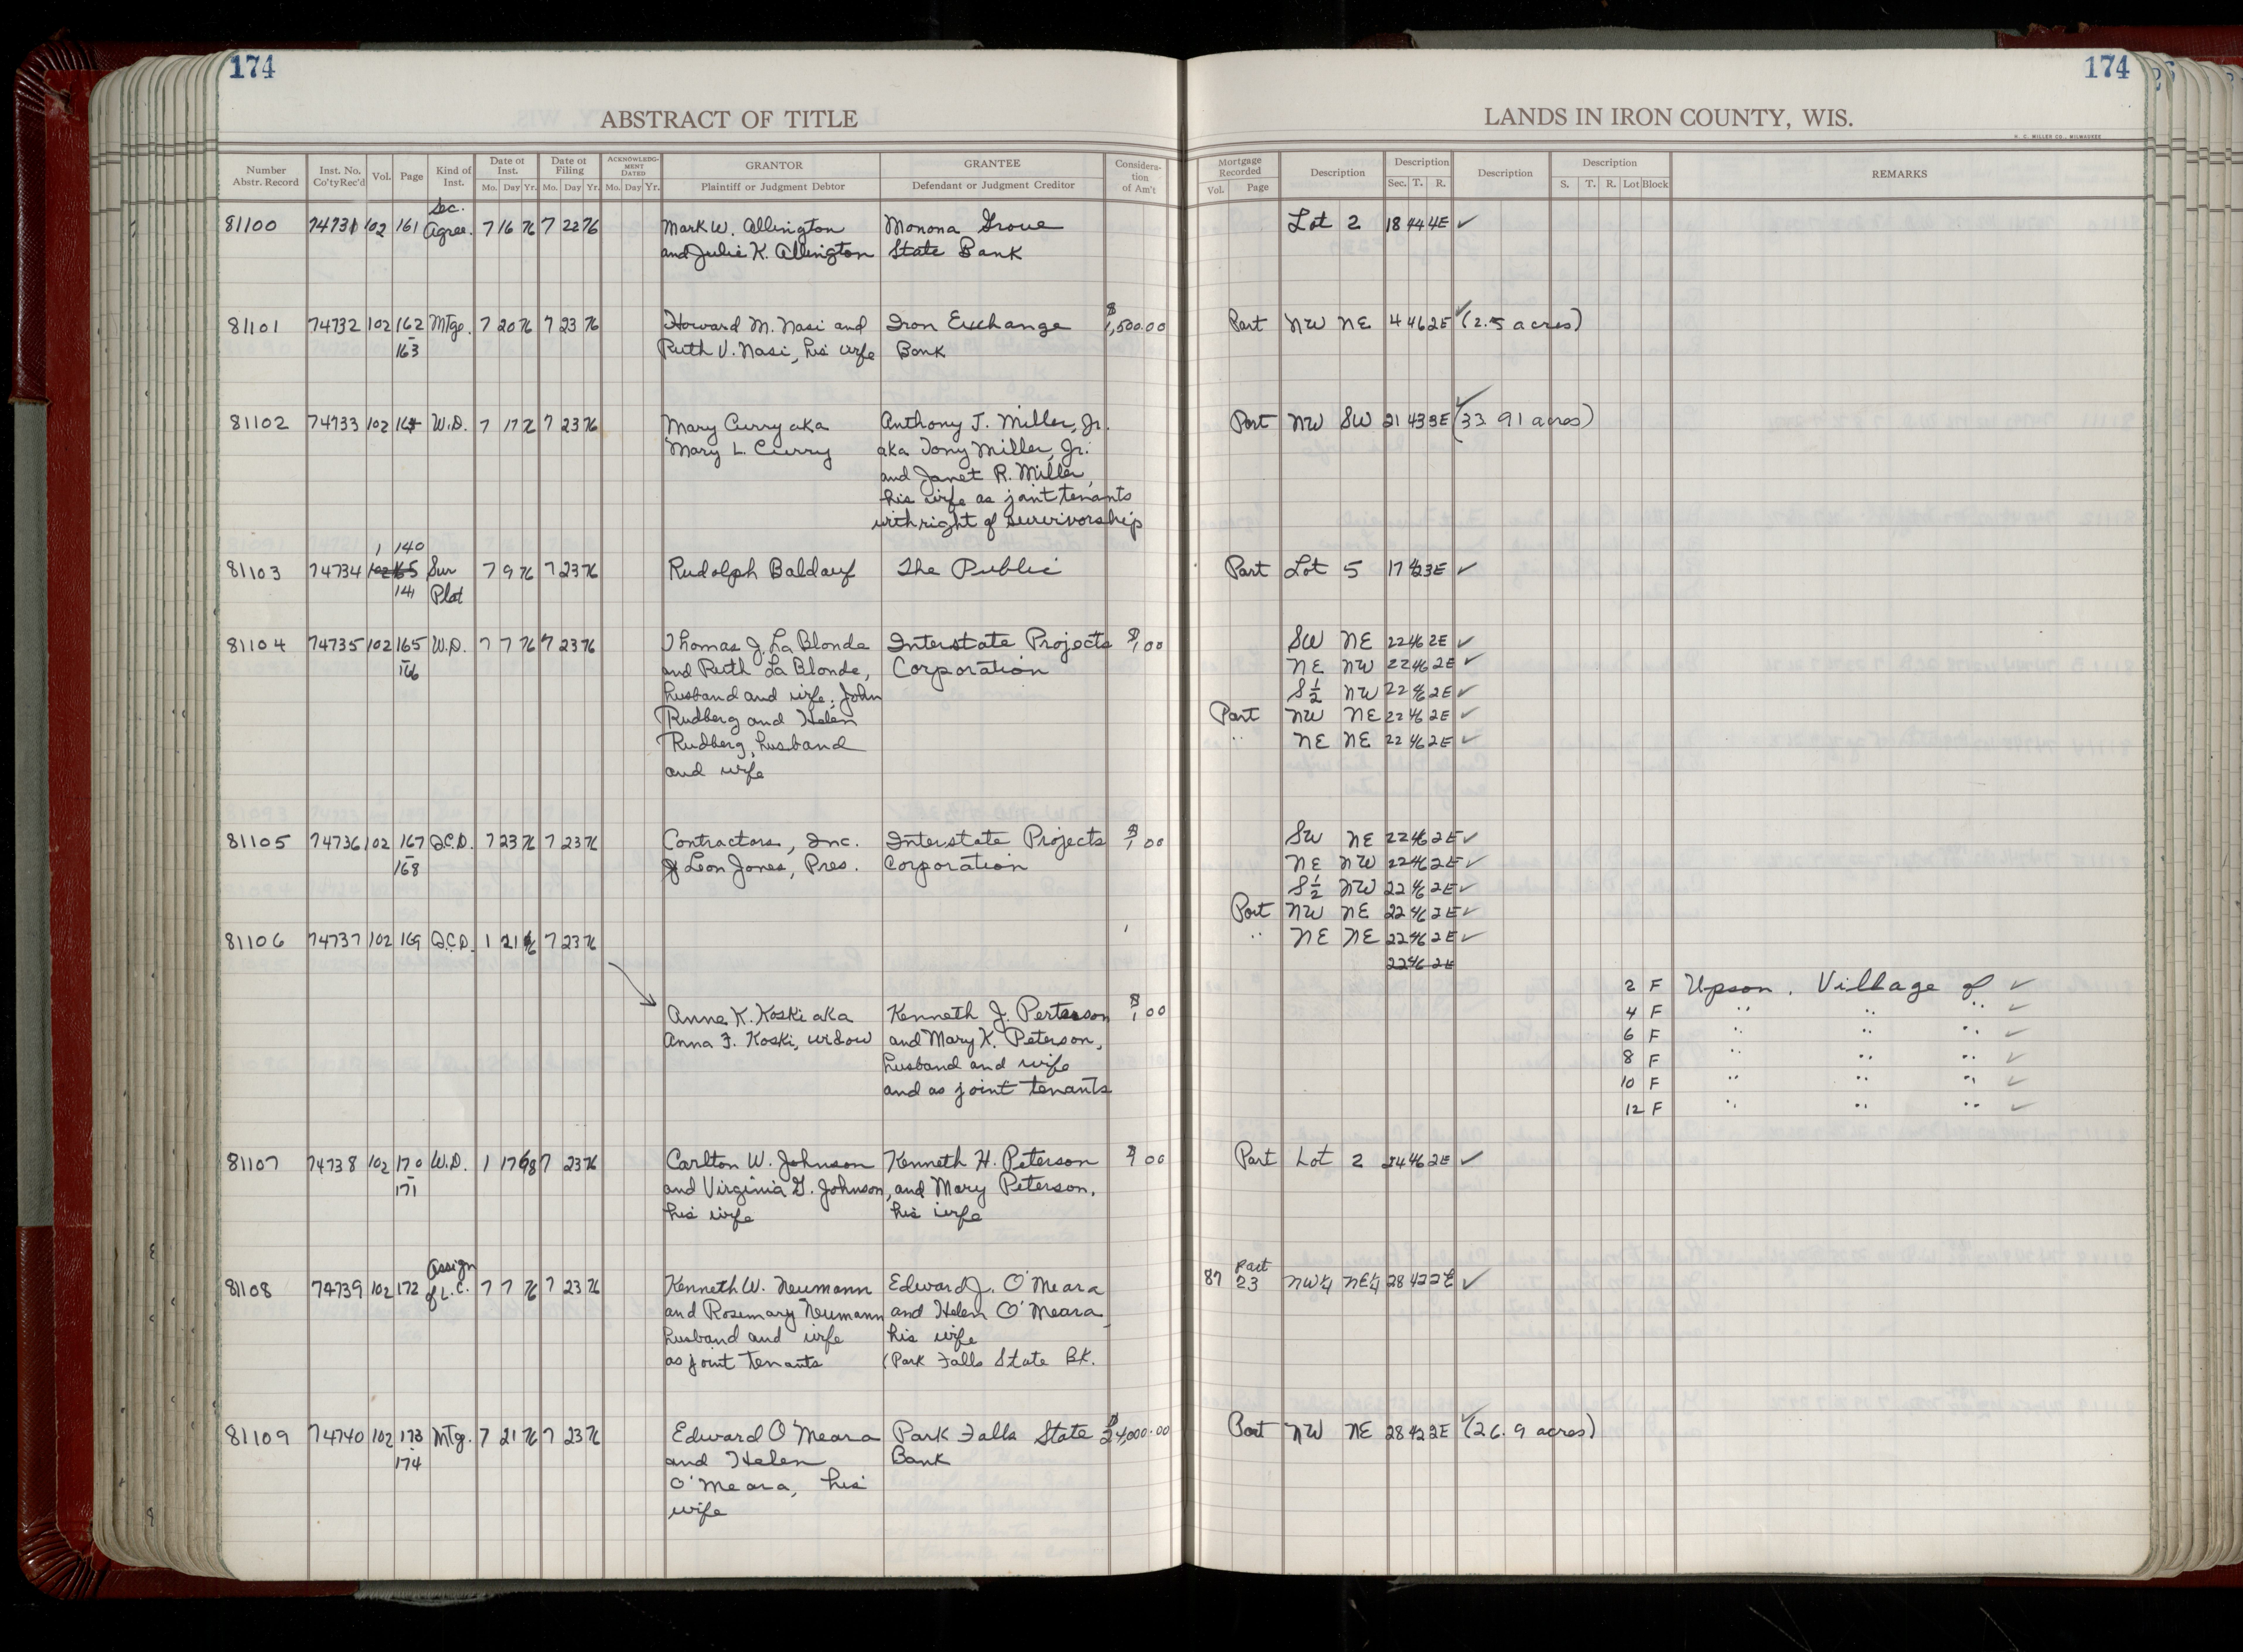 174
174
ABSTRACT OF TITLE
LANDS IN IRON COUNTY, WIS.
H. C. MILLER CO., MILWAUKEE
Number Abstr. Record | Inst. No. Co'ty Rec'd | Vol. | Page | Kind of Inst. | Date of Inst. Mo. Day Yr. | Date of Filing Mo. Day Yr. | ACKNOWLEDGMENT DATED Mo. Day Yr. | GRANTOR Plaintiff or Judgment Debtor | GRANTEE Defendant or Judgment Creditor | Consideration of Am't | Mortgage Recorded Vol. Page | Description | Description Sec. T. R. | Description | Description S. T. R. Lot Block | REMARKS
Sec.
81100 74731 102 161 Agree. 7 16 76 7 22 76 Mark W. Allington Monona Grove Lot 2 18 44 4E ✓
and Julie K. Allington State Bank
81101 74732 102 162 Mtge. 7 20 76 7 23 76 Howard M. Nasi and Iron Exchange $1,500.00 Part NW NE 4 46 2E ✓ (2.5 acres)
-163 Ruth V. Nasi, his wife Bank
81102 74733 102 164 W.D. 7 17 76 7 23 76 Mary Curry aka Anthony J. Miller, Jr. Part NW SW 21 43 3E ✓ (33.91 acres)
Mary L. Curry aka Tony Miller, Jr.
and Janet R. Miller,
his wife as joint tenants
with right of survivorship
1 140
81103 74734 102 165 Sur 7 9 76 7 23 76 Rudolph Baldauf The Public Part Lot 5 17 42 3E ✓
141 Plat
81104 74735 102 165 W.D. 7 7 76 7 23 76 Thomas J. La Blonde Interstate Projects $1.00 SW NE 22 46 2E ✓
-166 and Ruth La Blonde, Corporation NE NW 22 46 2E ✓
husband and wife; John S½ NW 22 46 2E ✓
Rudberg and Helen Part NW NE 22 46 2E ✓
Rudberg, husband " NE NE 22 46 2E ✓
and wife
81105 74736 102 167 Q.C.D. 7 23 76 7 23 76 Contractors, Inc. Interstate Projects $1.00 SW NE 22 46 2E ✓
-168 J Leon Jones, Pres. Corporation NE NW 22 46 2E ✓
S½ NW 22 46 2E ✓
Part NW NE 22 46 2E ✓
81106 74737 102 169 Q.C.D. 1 21 76 7 23 76 " NE NE 22 46 2E ✓
22 46 2E
2 F Upson, Village of ✓
Anna K. Koski aka Kenneth J. Perterson $1.00 4 F " " " ✓
Anna F. Koski, widow and Mary K. Peterson, 6 F " " " ✓
husband and wife 8 F " " " ✓
and as joint tenants 10 F " " " ✓
12 F " " " ✓
81107 74738 102 170 W.D. 1 17 68 7 23 76 Carlton W. Johnson Kenneth H. Peterson $1.00 Part Lot 2 24 46 2E ✓
-171 and Virginia G. Johnson, and Mary Peterson,
his wife his wife
Assign Part
81108 74739 102 172 of L.C. 7 7 76 7 23 76 Kenneth W. Neumann Edward J. O'Meara 87 23 NW¼ NE¼ 28 42 2E ✓
and Rosemary Neumann and Helen O'Meara,
husband and wife his wife
as joint tenants (Park Falls State BK.
81109 74740 102 173 Mtg. 7 21 76 7 23 76 Edward O'Meara Park Falls State $24,000.00 Part NW NE 28 42 2E ✓ (26.9 acres)
-174 and Helen Bank
O'Meara, his
wife